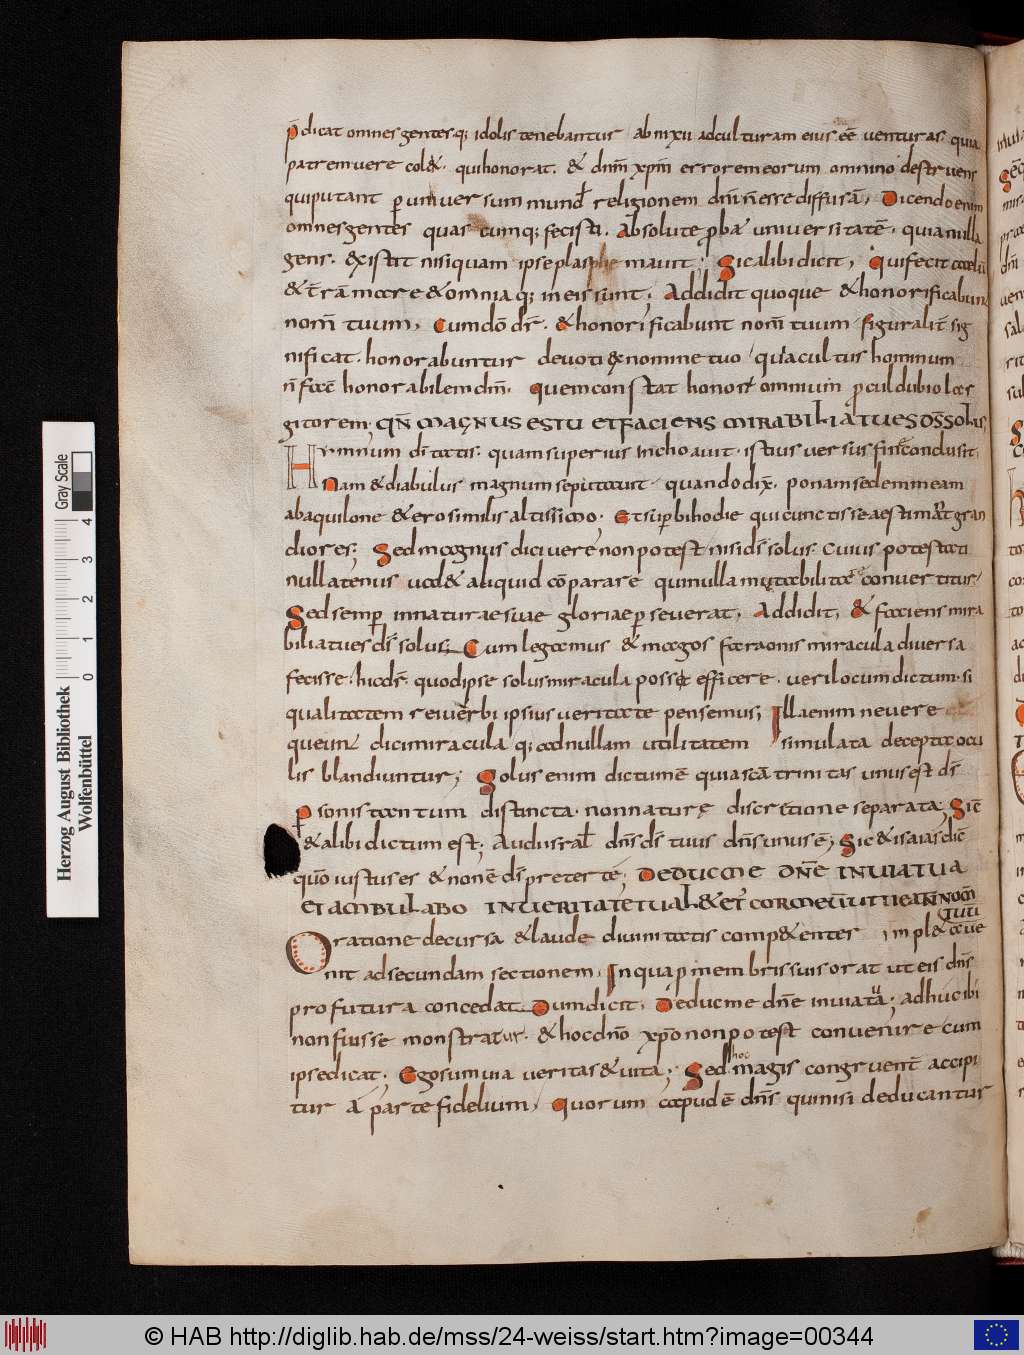 p̄dicat omnes gentes q; idolis tenebantur ab nixii ad culturam eius eē venturas quia
patrem vere col&. qui honorat. & dnm̄ xpm̄ errorem eorum omnino destruens
qui putant p universum mund̄ religionem dni n̄ esse diffusā, Dicendo enim
omnes gentes quascumq; fecisti. Absolute pbat universitatē. quia nulla
gens. existit nisi quam ipse plasmavit; Sic alibi dicit, Qui fecit cœlū
& t̄rā mare & omnia q; in eis sunt; Addidit quoque & honorificabunt
nom̄ tuum, Cum dō dr̄. & honorificabunt nom̄ tuum figuralit̄ sig
nificat. honorabuntur devoti ex nomine tuo quia cultus hominum
n̄ facē honorabilem dm̄. quem constat honore omnium procul dubio lar
gitorem; QN̄ MAGNUS ES TU ET FACIENS MIRABILIA TU ES DS̄ SOLUS
Hymnum dītatis. quam superius inchoavit. istius versus fine conclusit,
Nam & diabulus magnum se putavit quando dix̄. ponam sedem meam
ab aquilone & ero similis altissimo. Et superbi hodie qui cunctis se aestimant gran
diores; Sed magnus dici vere non potest nisi ds̄ solus. cuius potestati
nullatenus val& aliquid cōparare qui nulla mutabilitate convertitur
Sed semp in naturae suae gloriae p severat, Addidit, & faciens mira
bilia tu es ds̄ solus, Cum legamus & magos faraonis miracula diversa
fecisse. hic dr̄. quod ipse solus miracula possē efficere. veri locum dictum. si
qualitatem rei verbi ipsius veritate pensemus; Illa enim ne vere
queunt dici miracula q; ad nullam utilitatem simulata decepta ocu
lis blandiuntur; Solus enim dictum ē quia scā trinitas unus est ds̄
Psonis tantum distincta. non naturę discretione separata; Sic
& alibi dictum est. Audi isral̄ dns̄ ds̄ tuus dns̄ unus ē; Sic & isaias dic̄
quō iustus es & non ē ds̄ preter te; DEDUC ME DN̄E IN VIA TUA
ET AMBULABO IN VERITATE TUA L&ET̄ COR MEŪ UT TIMEAT NOM̄
TUŪ
Oratione decursa & laude divinitatis competenter, impleta que
nit ad secundam sectionem. In qua p membris suis orat ut eis dns̄
profutura concedat. Dum dicit, Deduc me dnē in via tua; adhuc ibi
non fuisse monstratur. & hoc dnō xpō non potest convenire cum
ipse dicat; Ego sum via veritas & vita; Sed hoc magis congruent̄ accipi
tur a parte fidelium, Quorum caput ē dns̄ qui nisi deducantur
Herzog August Bibliothek
Wolfenbüttel
Gray Scale
0 1 2 3 4
© HAB http://diglib.hab.de/mss/24-weiss/start.htm?image=00344